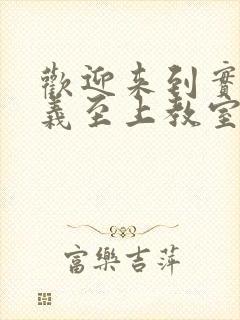 歡迎来到實
義至上教室
富樂吉萍